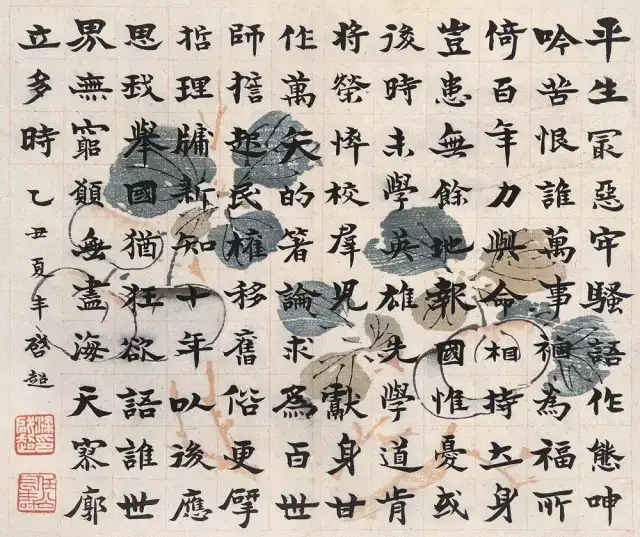 平生冣惡牢騷語作態呻
吟苦恨誰萬事禍為福所
倚百年力與命相持立身
豈患無餘地報國惟憂或
後時未學英雄先學道肯
將榮悴校羣兒獻身甘
作萬矢的著論求為百世
師誓起民權移舊俗更揅
哲理牖新知十年以後應
思我舉國猶狂欲語誰世
界無窮願無盡海天寥廓
立多時 乙丑夏半啓超